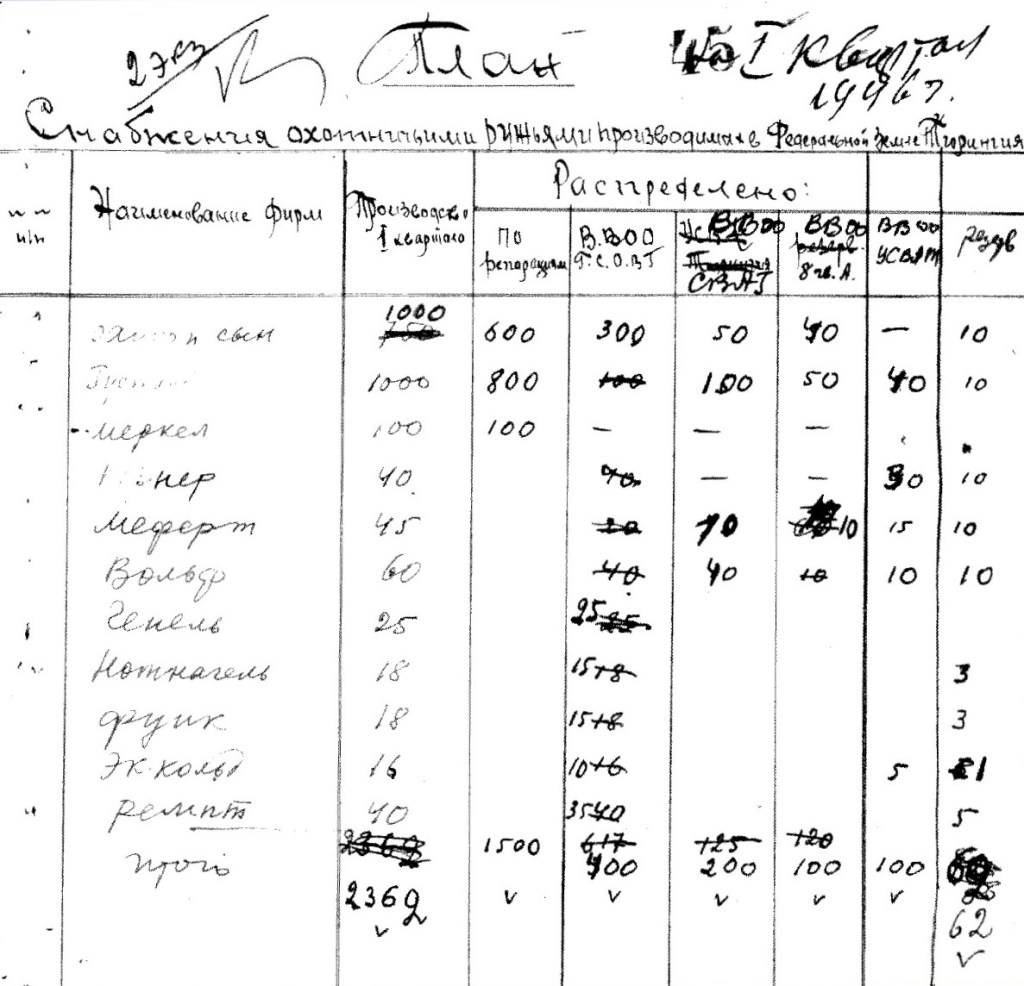 2 экз План на I квартал
1946 г.
Снабжения охотничьими ружьями производимых в Федеральной Земле Тюрингия
Наименование фирм Производство I квартала Распределено:
п/п По репарациям В.ВОО Г.С.О.В.Г ВВОО СВАГ ВВОО 8 гв. А. ВВОО УСВАТ резерв
сын 1000 600 300 50 40 — 10
1000 800 100 100 50 40 10
Меркел 100 100 — — —
40 40 — — 30 10
Меферт 45 20 10 10 15 10
Вольф 60 40 40 10 10 10
Генель 25 25 25
Нотнагель 18 15 +8 3
Функ 18 15 +8 3
Эк. кольд 16 10 +6 5 1
Ремпт 40 35 40 5
2369 1500 617 125 120
Итого 400 200 100 100
2369 v v v v v
v 62
v